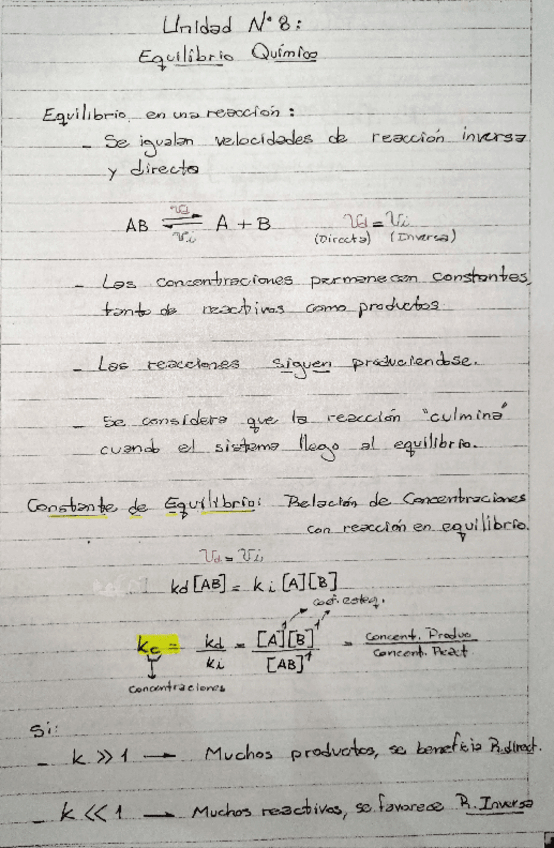 Unidad N° 8:
Equilibrio Químico
Equilibrio en una reacción:
- Se igualan velocidades de reacción inversa
y directa
AB ⇌ A + B
Vd
Vi
Vd = Vi
(Directa) (Inversa)
- Las concentraciones permanecen constantes,
tanto de reactivos como productos.
- Las reacciones siguen produciendose.
- Se considera que la reacción "culmina"
cuando el sistema llego al equilibrio.
Constante de Equilibrio: Relación de Concentraciones
con reacción en equilibrio.
Vd = Vi
kd [AB] = ki [A][B]
coef. esteq.
kc = kd/ki = [A]^1 [B]^1 / [AB]^1 = Concent. Produc / Concent. React
concentraciones
Si:
- k >> 1 → Muchos productos, se beneficia R. direct.
- k << 1 → Muchos reactivos, se favorece R. Inversa